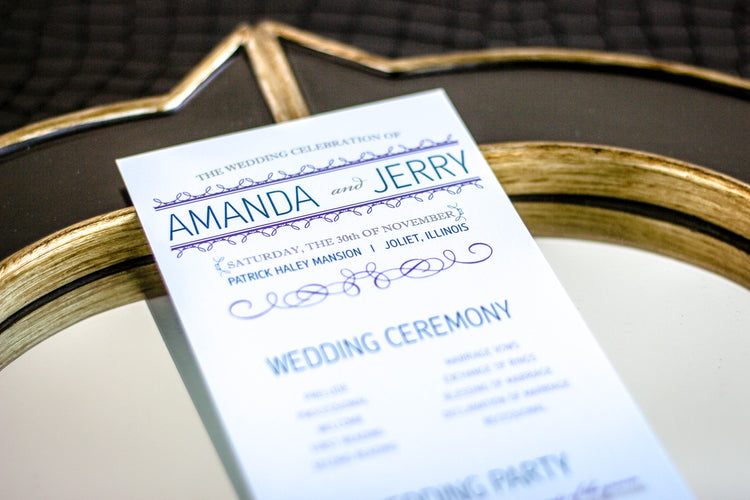 THE WEDDING CELEBRATION OF
AMANDA and JERRY
SATURDAY, THE 30th OF NOVEMBER
PATRICK HALEY MANSION | JOLIET, ILLINOIS
WEDDING CEREMONY
PRELUDE
PROCESSIONAL
WELCOME
FIRST READING
SECOND READING
MARRIAGE VOWS
EXCHANGE OF RINGS
BLESSING OF MARRIAGE
DECLARATION OF MARRIAGE
RECESSIONAL
WEDDING PARTY